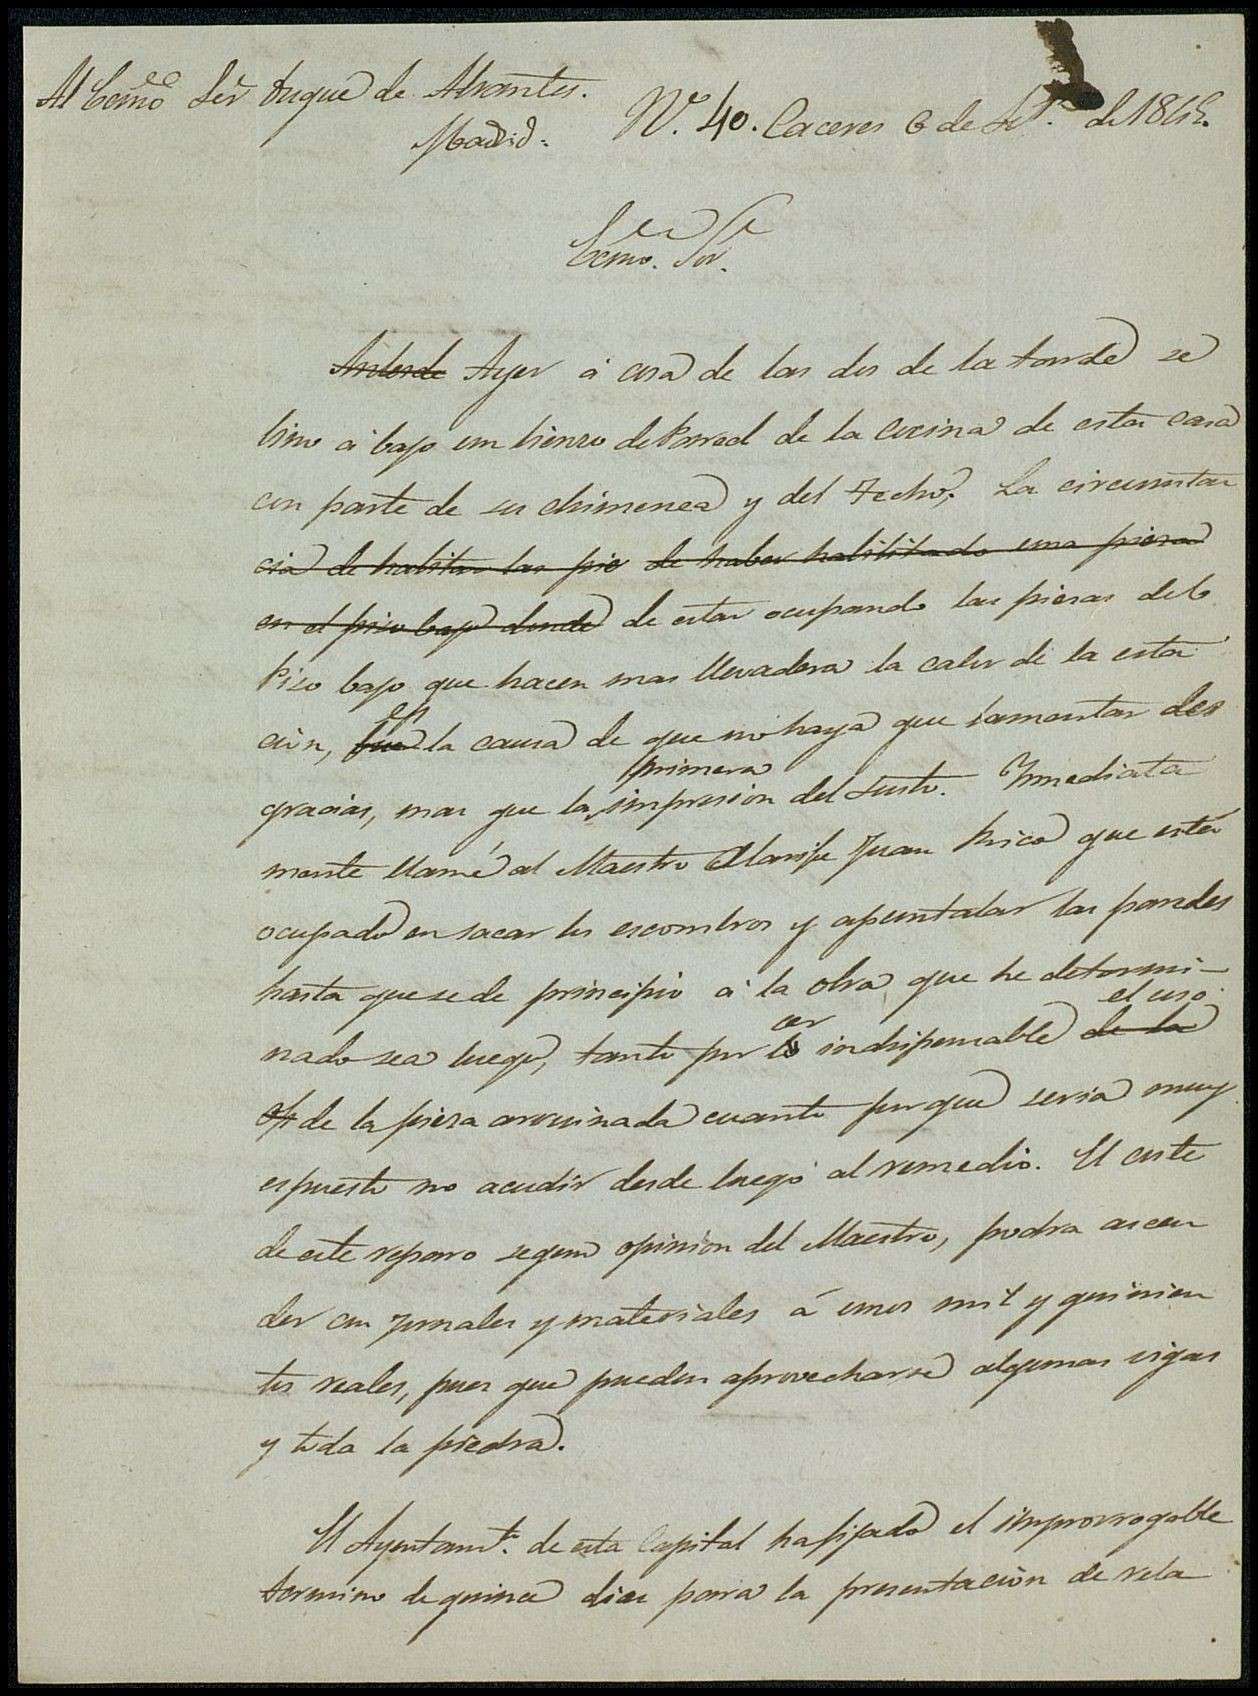 Al Ecmo Sor Duque de Abrantes.
Madrid.
Nº. 40. Caceres 6 de Set.e de 1845.
Ecmo. Sor.
Antesde Ayer á cosa de las dos de la tarde se
bino á bajo un lienzo de Pared de la Cocina de esta casa
con parte de su chimenea y del techo, La circunstan
cia de habitar las pie de haber habilitado una pieza
en el piso bajo donde de estar ocupando las piezas del
Piso bajo que hacen mas llevadera la calor de la esta
cion, fue es la causa de que no haya que lamentar des
gracias, mas que la primera impresion del susto. Ynmediata
mente llamé al Maestro Alarife Juan Rico que está
ocupado en sacar los escombros y apuntalar las paredes
hasta que se de principio á la obra que he determi-
nado sea luego, tanto por ser indispensable de la el uso
de la pieza arruinada cuanto porque seria muy
espuesto no acudir desde luego al remedio. El coste
de este reparo segun opinion del Maestro, podra ascen
der con jornales y materiales á unos mil y quinien
tos reales, pues que pueden aprovecharse algunas vigas
y toda la piedra.
El Ayuntamto. de esta Capital ha fijado el improrrogable
termino de quince dias para la presentacion de rela